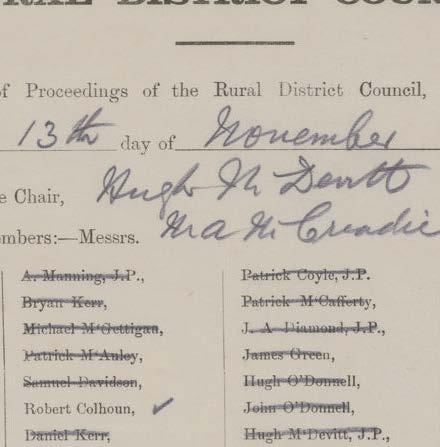 RURAL DISTRICT COUN
of Proceedings of the Rural District Council,
13th day of November
e Chair, Hugh McDevitt
embers:—Messrs. McCreadie
A. Manning, J.P., Patrick Coyle, J.P.
Bryan Kerr, Patrick M'Cafferty,
Michael M'Gettigan, J. A. Diamond, J.P.,
Patrick M'Auley, James Green,
Samuel Davidson, Hugh O'Donnell,
Robert Colhoun, ✓ John O'Donnell,
Daniel Kerr, Hugh M'Devitt, J.P.,